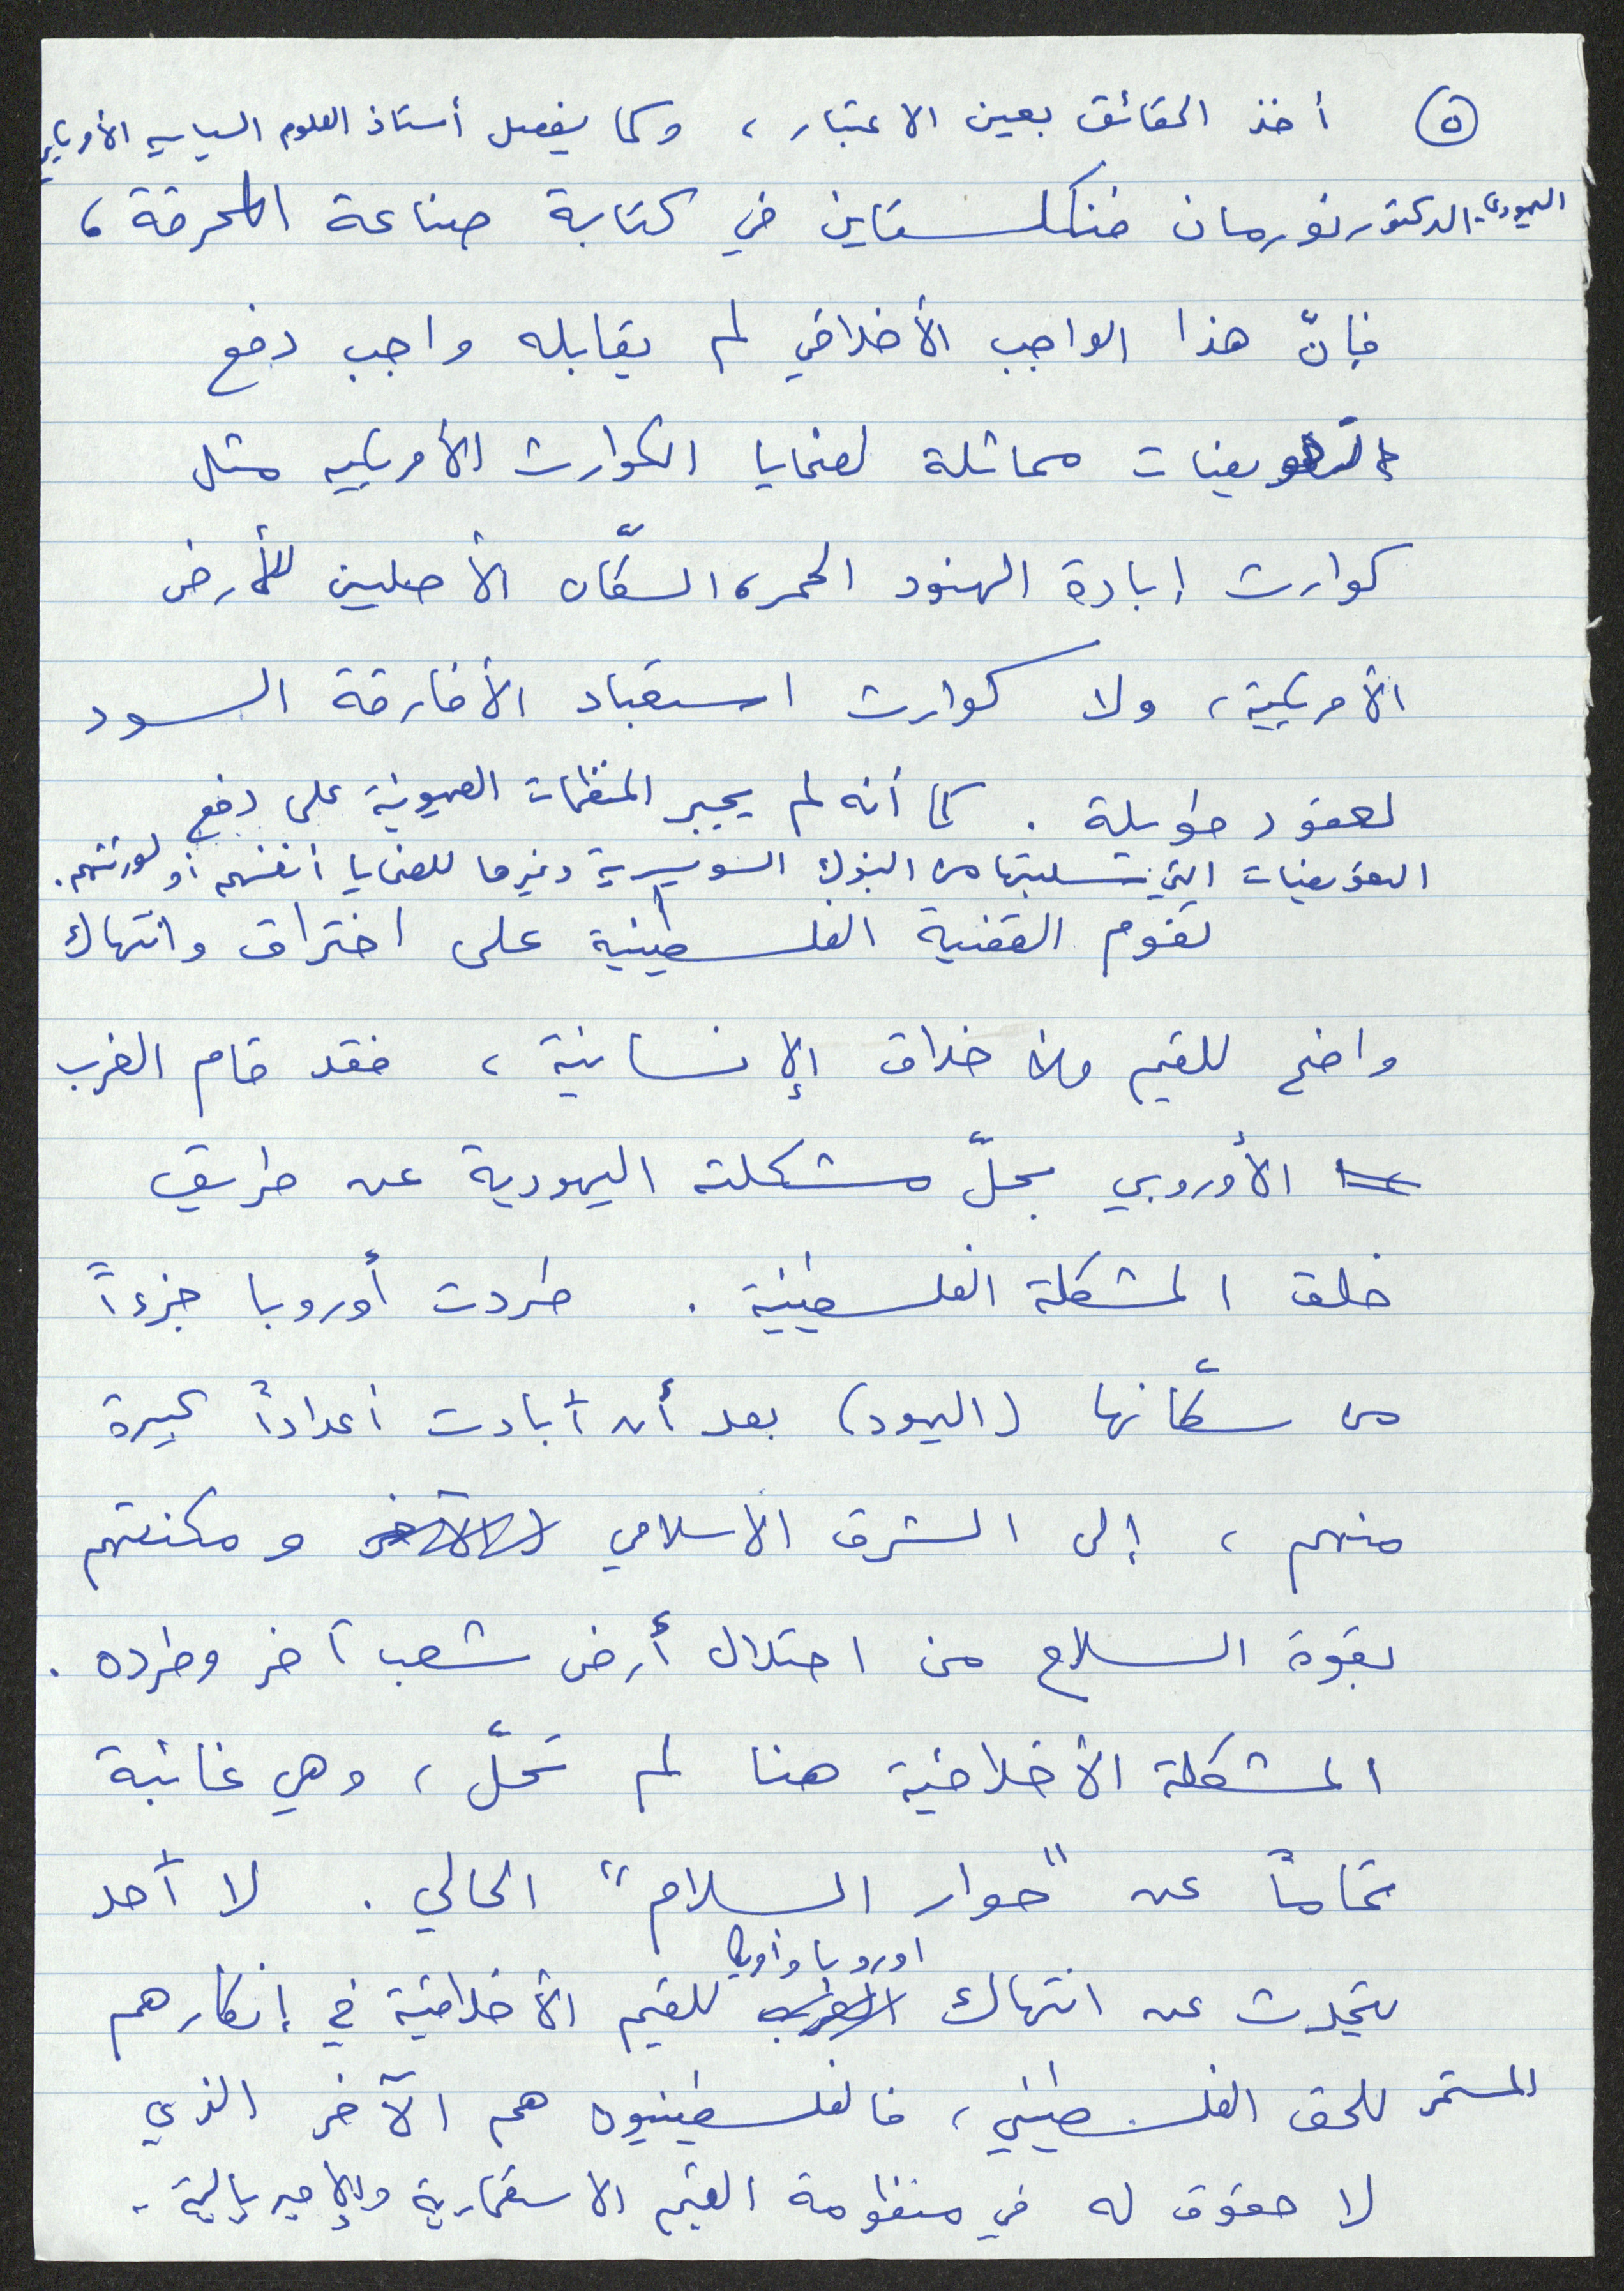 ٥ أخذ الحقائق بعين الاعتبار ، وكما يفصل أستاذ العلوم السياسيه الأمريكي
اليهودي الدكتور نورمان فنكلستاين في كتابة صناعة المحرقة ،
فإنّ هذا الواجب الأخلاقي لم يقابله واجب دفع
تعويضات مماثلة لضحايا الكوارث الأمريكيه مثل
كوارث إبادة الهنود الحمر ، السكّان الأصليين للأرض
الأمريكية ، ولا كوارث استعباد الأفارقة السود
لعقود طويلة . كما أنه لم يجبر المنظمات الصهيونية على دفع
التعويضات التي تسلبتها من البنوك السويسرية وغيرها للضحايا أنفسهم أو لورثتهم .
تقوم القضية الفلسطينية على اختراق وانتهاك
واضح للقيم والأخلاق الإنسانية ، فقد قام الغرب
الأوروبي بحلّ مشكلته اليهودية عن طريق
خلق المشكلة الفلسطينية . طردت أوروبا جزءاً
من سكّانها (اليهود) بعد أن أبادت أعداداً كبيرة
منهم ، إلى الشرق الاسلامي ومكنتهم
بقوة السلاح من احتلال أرض شعب آخر وطرده .
المشكلة الأخلاقية هنا لم تحلّ ، وهي غائبة
تماماً عن "حوار السلام" الحالي . لا أحد
يتحدث عن انتهاك اوروبا وأمريكا للقيم الأخلاقية في إنكارهم
المستمر للحق الفلسطيني ، فالفلسطينيون هم الآخر الذي
لا حقوق له في منظومة القيم الاستعمارية والإمبريالية .